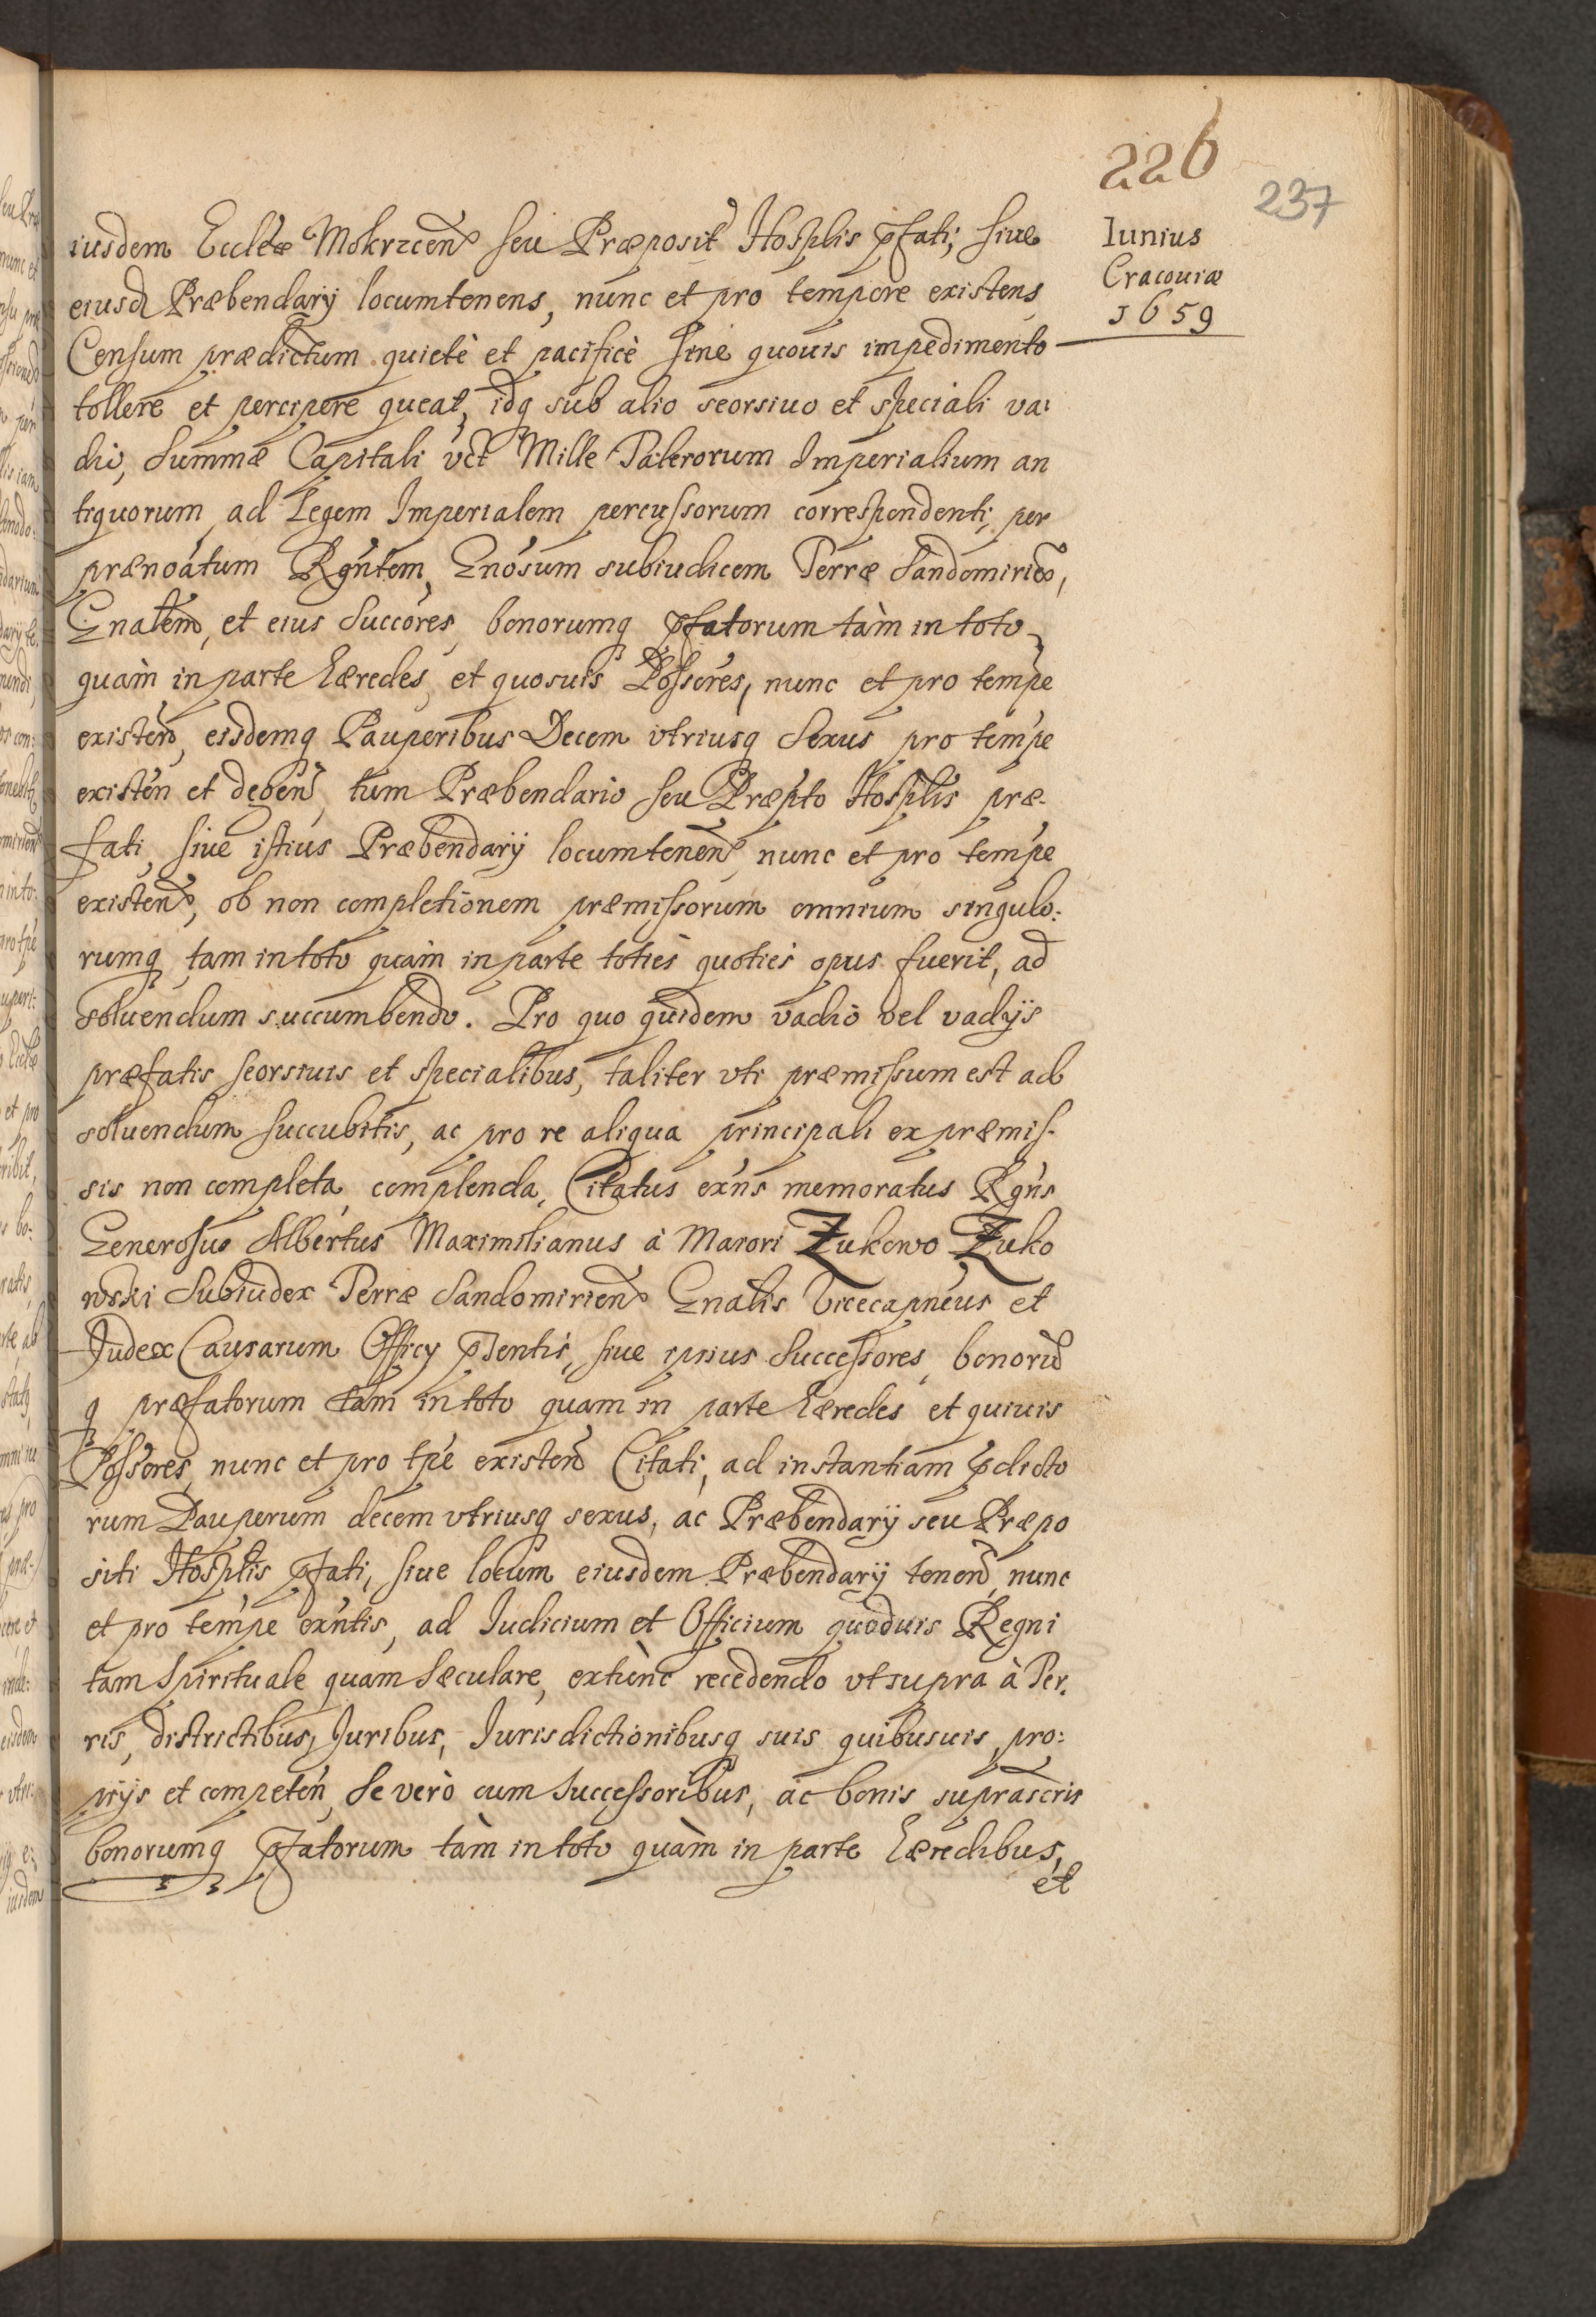 226
237
Iunius
Cracouiæ
1659
iusdem Eccleæ Mokrzcen seu Præposit Hosplis pfati, siue
eiusd Præbendarij locumtenens, nunc et pro tempore existens
Censum prædictum quietè et pacificè sine quouis impedimento
tollere et percipere queat, idq sub alio seorsiuo et speciali va:
dio, Summæ Capitali vct Mille Talerorum Imperialium an
tiquorum ad Legem Imperialem percussorum correspondenti, per
prænoatum Rgntem, Gnosum subiudicem Terræ Sandomirien,
Gnalem, et eius Succores, bonorumq pfatorum tàm in toto
quàm in parte hæredes, et quosuis Possores, nunc et pro tempe
existen, eisdemq Pauperibus Decem vtriusq Sexus pro tempe
existen et degen, tum Præbendario seu Præpto Hosplis præ-
fati, siue istius Præbendarij locumtenen, nunc et pro tempe
existen, ob non completionem præmissorum omnium singulo:
rumq tam in toto quàm in parte toties quoties opus fuerit, ad
soluendum succumbendo. Pro quo quidem vadio vel vadijs
præfatis seorsiuis et specialibus, taliter vti præmissum est ad
soluendum succubitis, ac pro re aliqua principali ex præmis-
sis non completa, complenda, Citatus exns memoratus Rgns
Generosus Albertus Maximilianus à Maiori Żukowo Żuko
wski Subiudex Terræ Sandomirien Gnalis Vicecapneus et
Judex Causarum Officy pntis, siue ipsius Successores, bonorũ
q præfatorum tam in toto quam in parte hæredes et quiuis
Possores, nunc et pro tpe existen Citati, ad instantiam pdicto
rum Pauperum decem vtriusq sexus, ac Præbendarij seu Præpo
siti Hosplis pfati, siue locum eiusdem Præbendarij tenen, nunc
et pro tempe exntis, ad Iudicium et Officium quoduis Regni
tam Spirituale quam Sæculare, extùnc recedendo vt supra à Ter:
ris, districtibus, Juribus, Iurisdictionibusq suis quibusuis, pro:
prijs et competen, Se verò cum Successoribus, ac bonis suprascris
bonorumq pfatorum tàm in toto quàm in parte hæredibus,
et